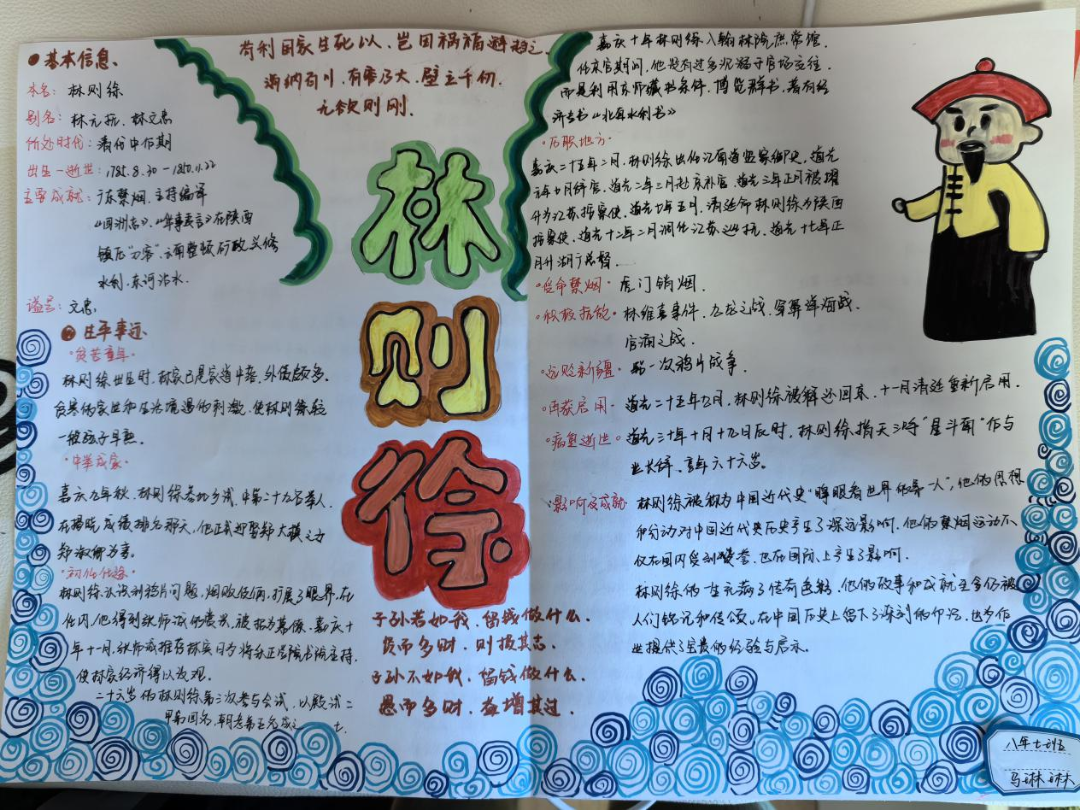 苟利国家生死以、岂因祸福避趋之、
海纳百川,有容乃大,壁立千仞,
无欲则刚.
基本信息、
本名:林则徐
别名:林元抚、林文忠
所处时代:清代中后期
出生—逝世:1785.8.30—1850.11.22
主要成就:广东禁烟、主持编译
《四洲志》、《华事夷言》在陕西
镇压"刀客"云南整顿矿政兴修
水利、东河治水.
谥号:文忠、
生平事迹
·贫苦童年·
林则徐出生时,林家已是家道中落,外债颇多.
贫寒的家世和生活境遇的刺激,使林则徐较
一般孩子早熟.
·中举成家·
嘉庆九年秋、林则徐参加乡试,中第二十九名举人,
在揭晓成绩排名那天,他正式迎娶郑大模之女
郑淑卿为妻.
·初仕
林则徐
任内,他得到
年十一月
使林家经济得以改观.
二十六岁的林则徐第三次参与会试,以殿试二
甲第四名,朝考第五名成
林
则
徐
子孙若如我,留钱做什么.
贤而多财,则损其志.
子孙不如我,留钱做什么.
愚而多财,益增其过.
嘉庆十年林则徐入翰林院庶常馆.
任京官期间,他
而是利用京师藏书条件,博览群书、著有经
济专书《北直水利书》
·历职地方·
嘉庆二十五年二月,林则徐出任江南道监察御史,道光
元年七月辞官,道光二年二月
升为江苏按察使,道光七年五月,清廷命林则徐为陕西
按察使,道光十二年二月调任江苏巡抚,道光十七年正
月升湖广总督.
·受命禁烟·虎门销烟.
林维喜事件、九龙之战、穿鼻洋海战、
官涌之战.
·远贬新疆·第一次鸦片战争.
·再获启用·道光二十五年九月,林则徐被释还回来,十一月清廷重新启用.
·病重逝世·道光三十年十月十九日辰时,林则徐指天三呼"星斗南"作与
世长辞,享年六十六岁.
·影响及成就·林则徐被称为中国近代史"睁眼看世界的第一人",他的思想
和行动对中国近代史历史产生了深远影响.他的禁烟运动不
仅在国内受到赞誉,也在国际上产生了影响.
林则徐的一生充满了传奇色彩,他的故事和成就至今仍被
人们铭记和传颂,在中国历史上留下了深刻的印记,也为后
世提供了宝贵的经验与启示.
八年七班
马琳琳